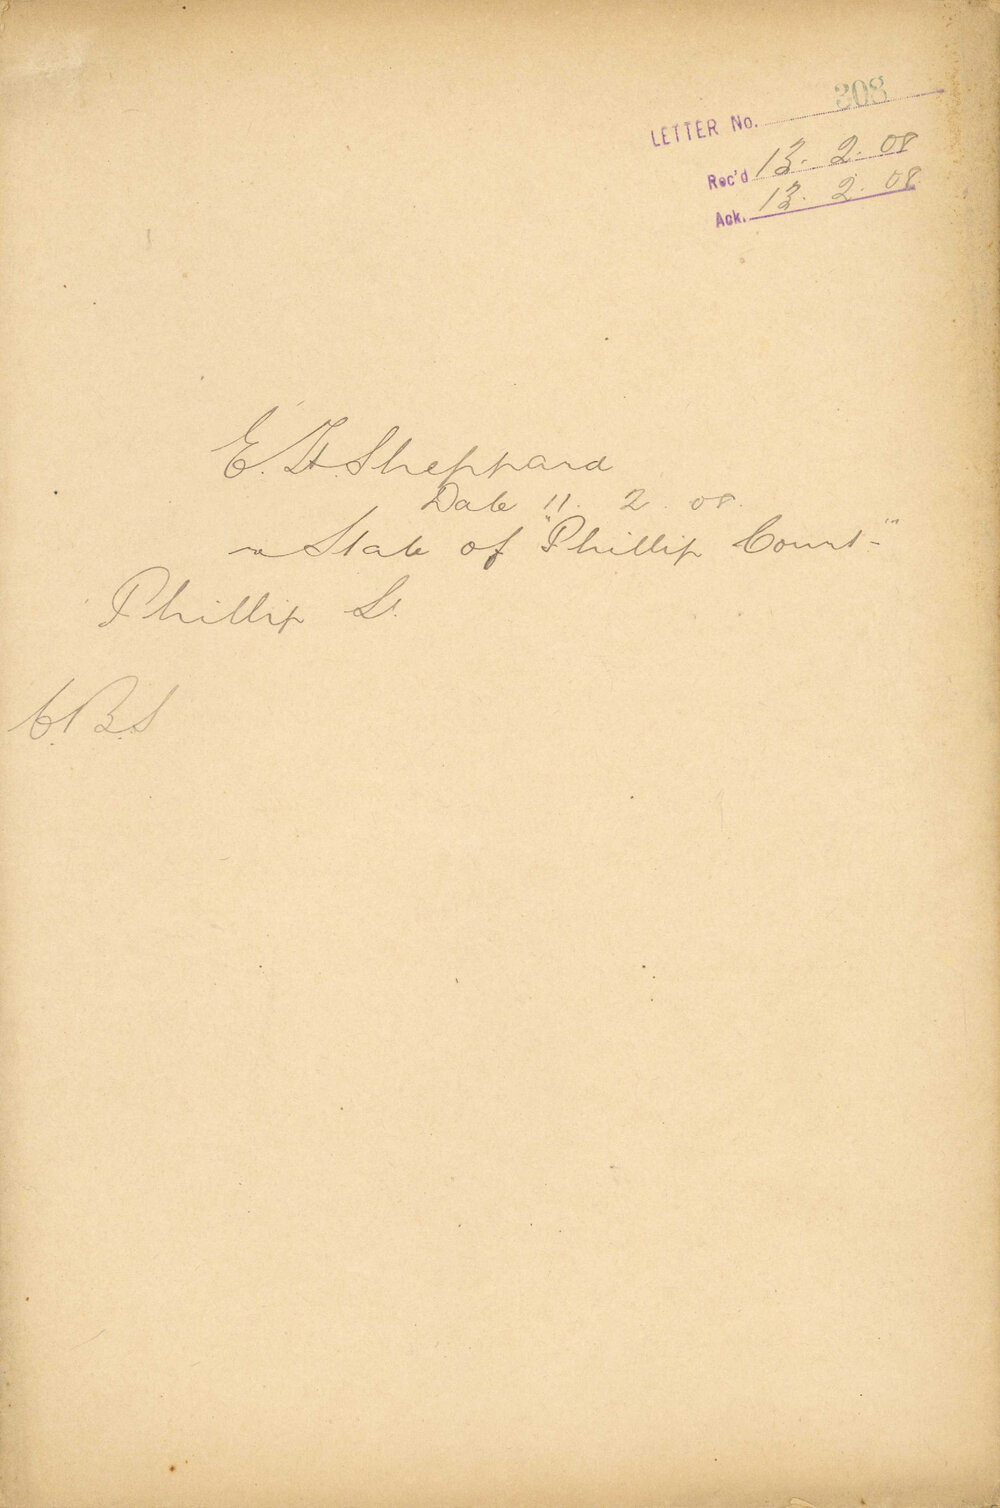 LETTER No. 308
Rec'd 13. 2. 08
Ack. 13. 2. 08.
E. H. Sheppard
Date 11. 2. 08.
re State of "Phillip Court"
Phillip St.
C.B.S